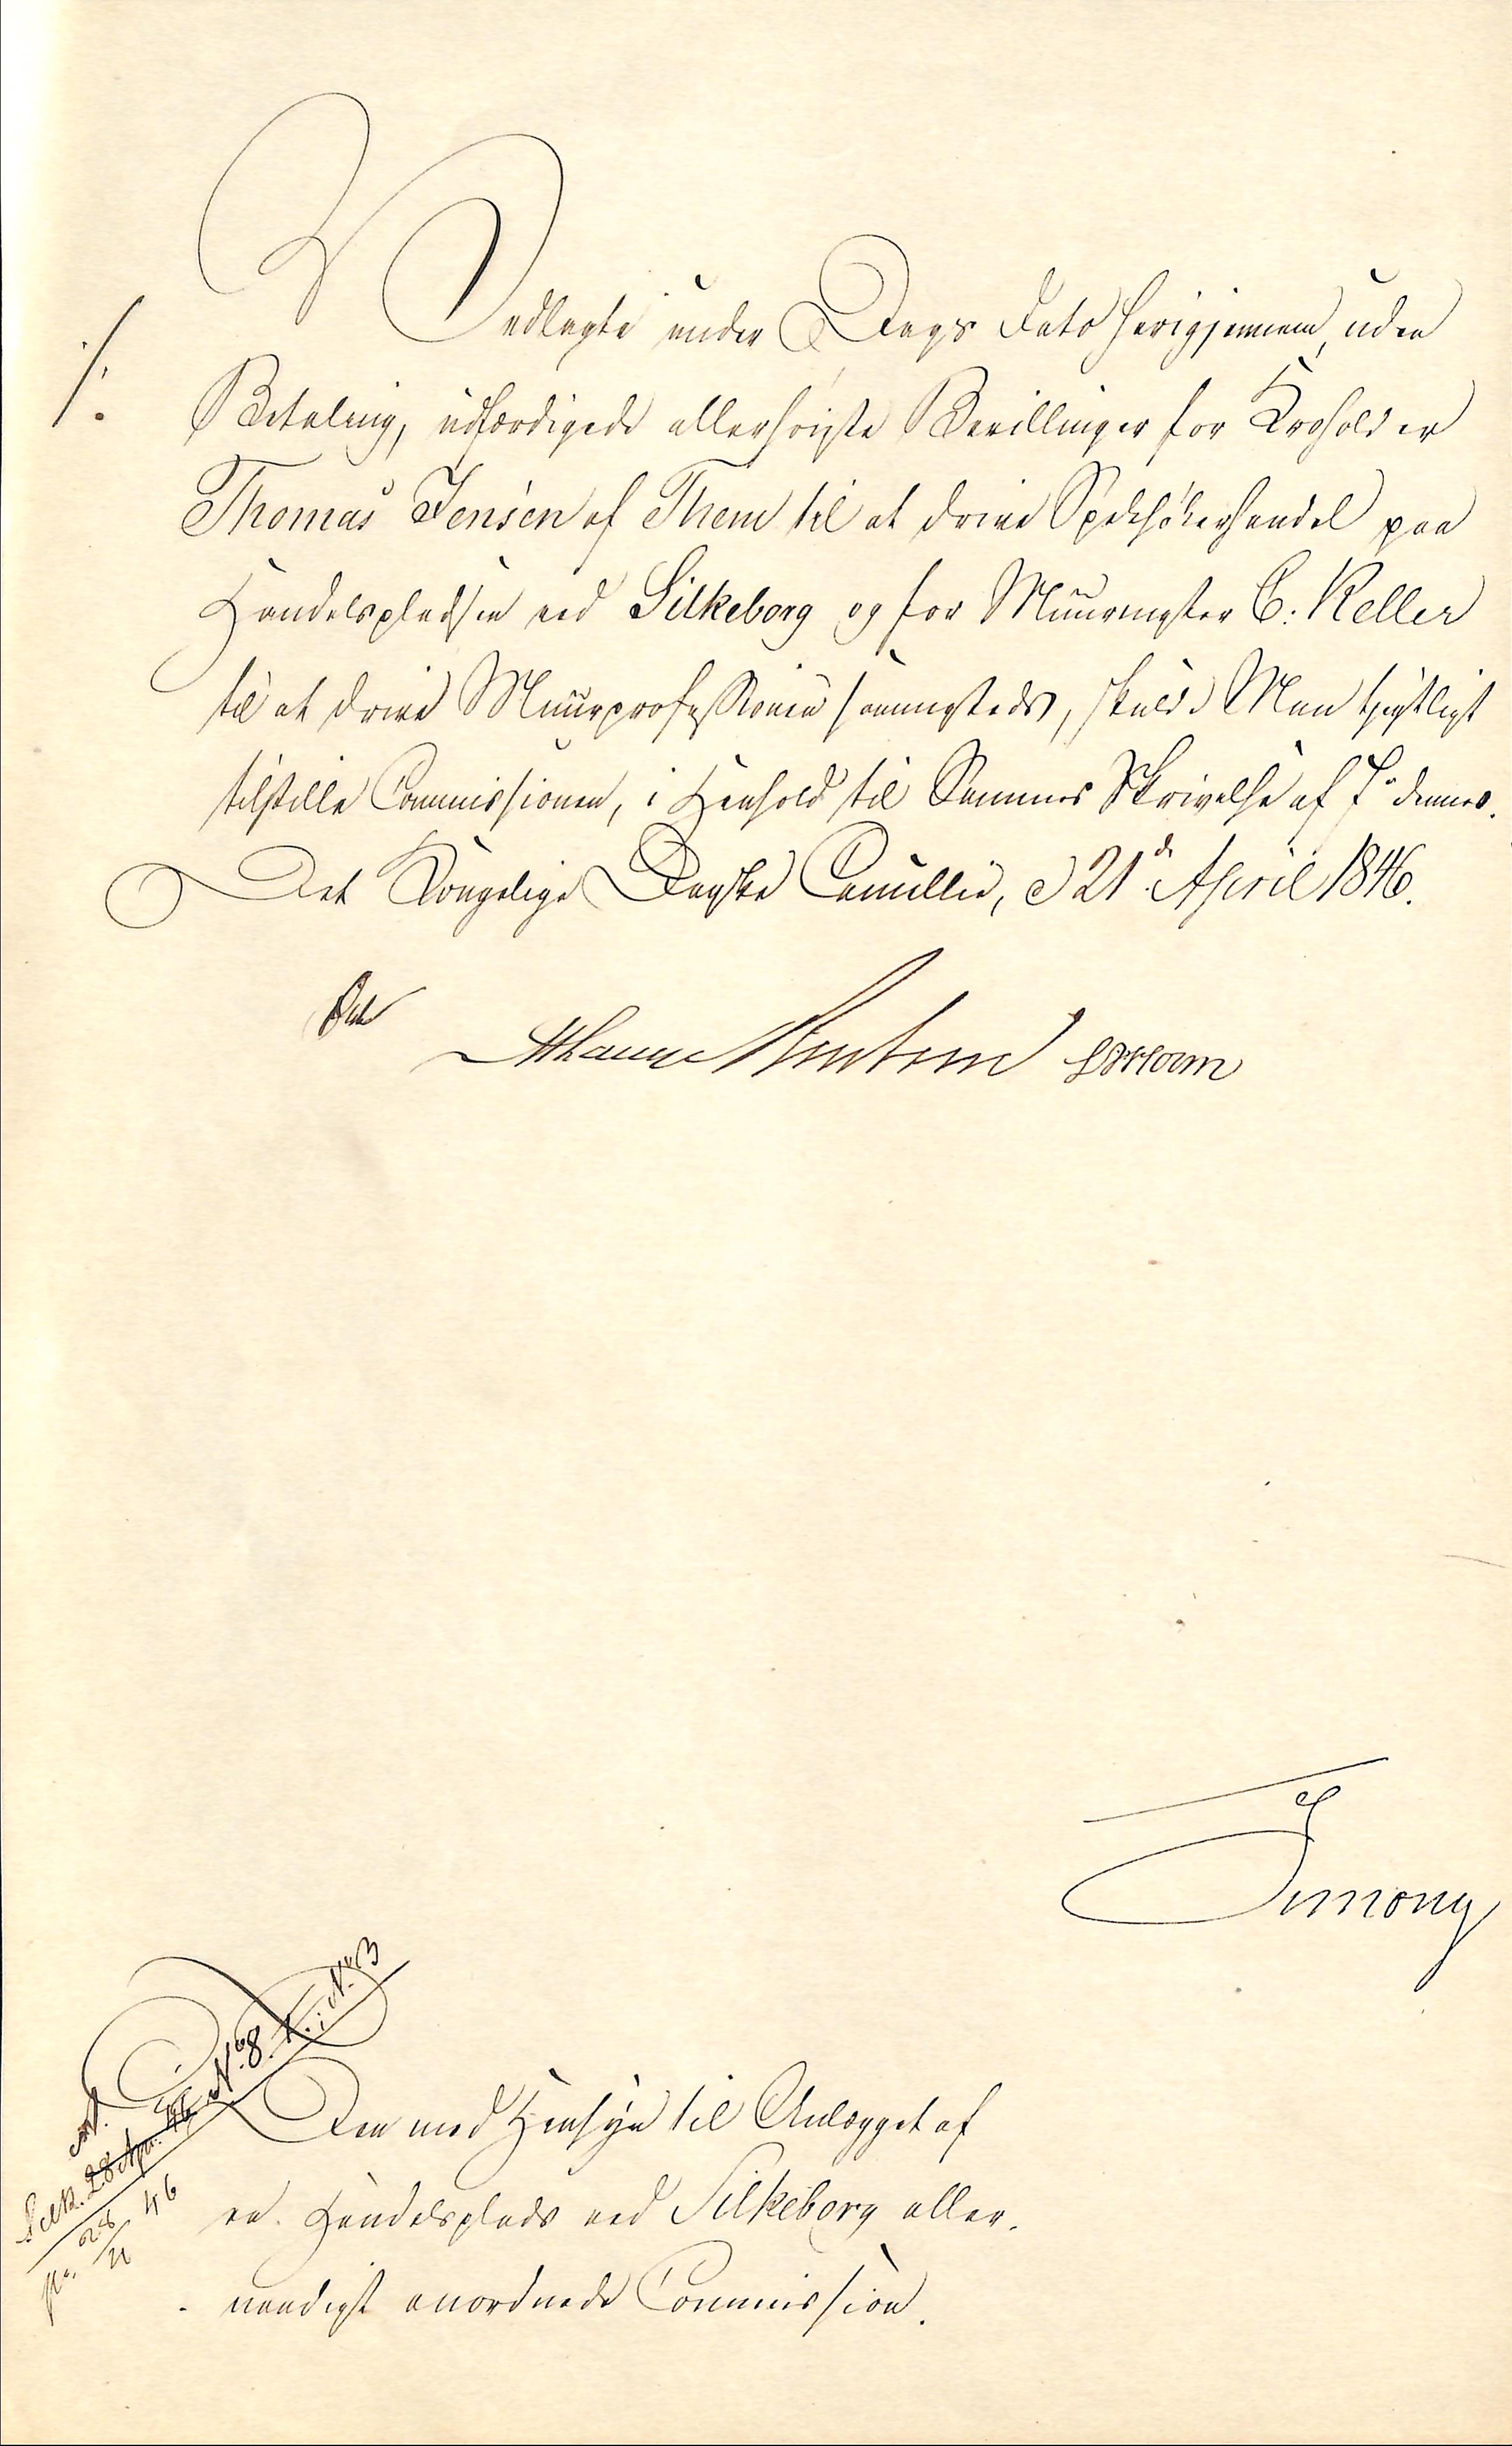 Vedlagte under Dags Dato herigjennem, uden
Betaling, udfærdigede allerhøieste Bevillinger for Kroholder
Thomas Jensen af Them til at drive Spekhøkerhandel paa
Handelspladsen ved Silkeborg og for Muurmester C. Keller
til at drive Muurprofessionen sammesteds, skulde Man tjenstligst
tilstille Commissionen, i Henhold til Sammes Skrivelse af 7de dennes.
Det Kongelige Danske Cancellie, d 21de April 1846.
Lassen
Simony
No. 8. K.; No. 3
Silk. 28 Apr. 46
28/4 46
Den med Hensyn til Anlægget af
en Handelsplads ved Silkeborg aller-
naadigst anordnede Commission.